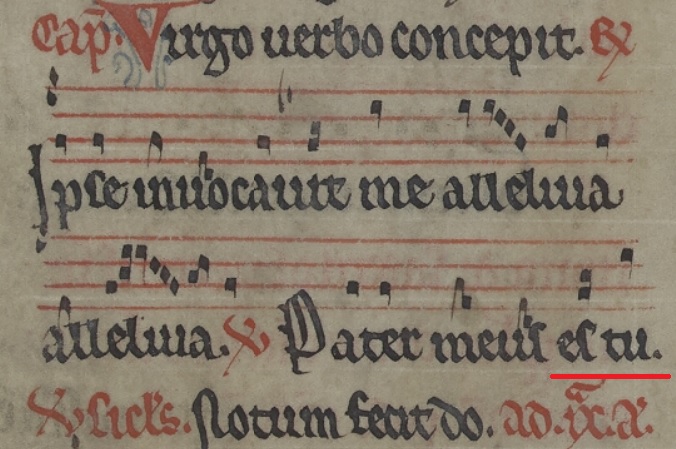 Cap̄. Virgo uerbo concepit. ℟
Ipse inuocauit me alleluia
alleluia. ℣ Pater meus es tu.
℣ Notum fecit do. ad.